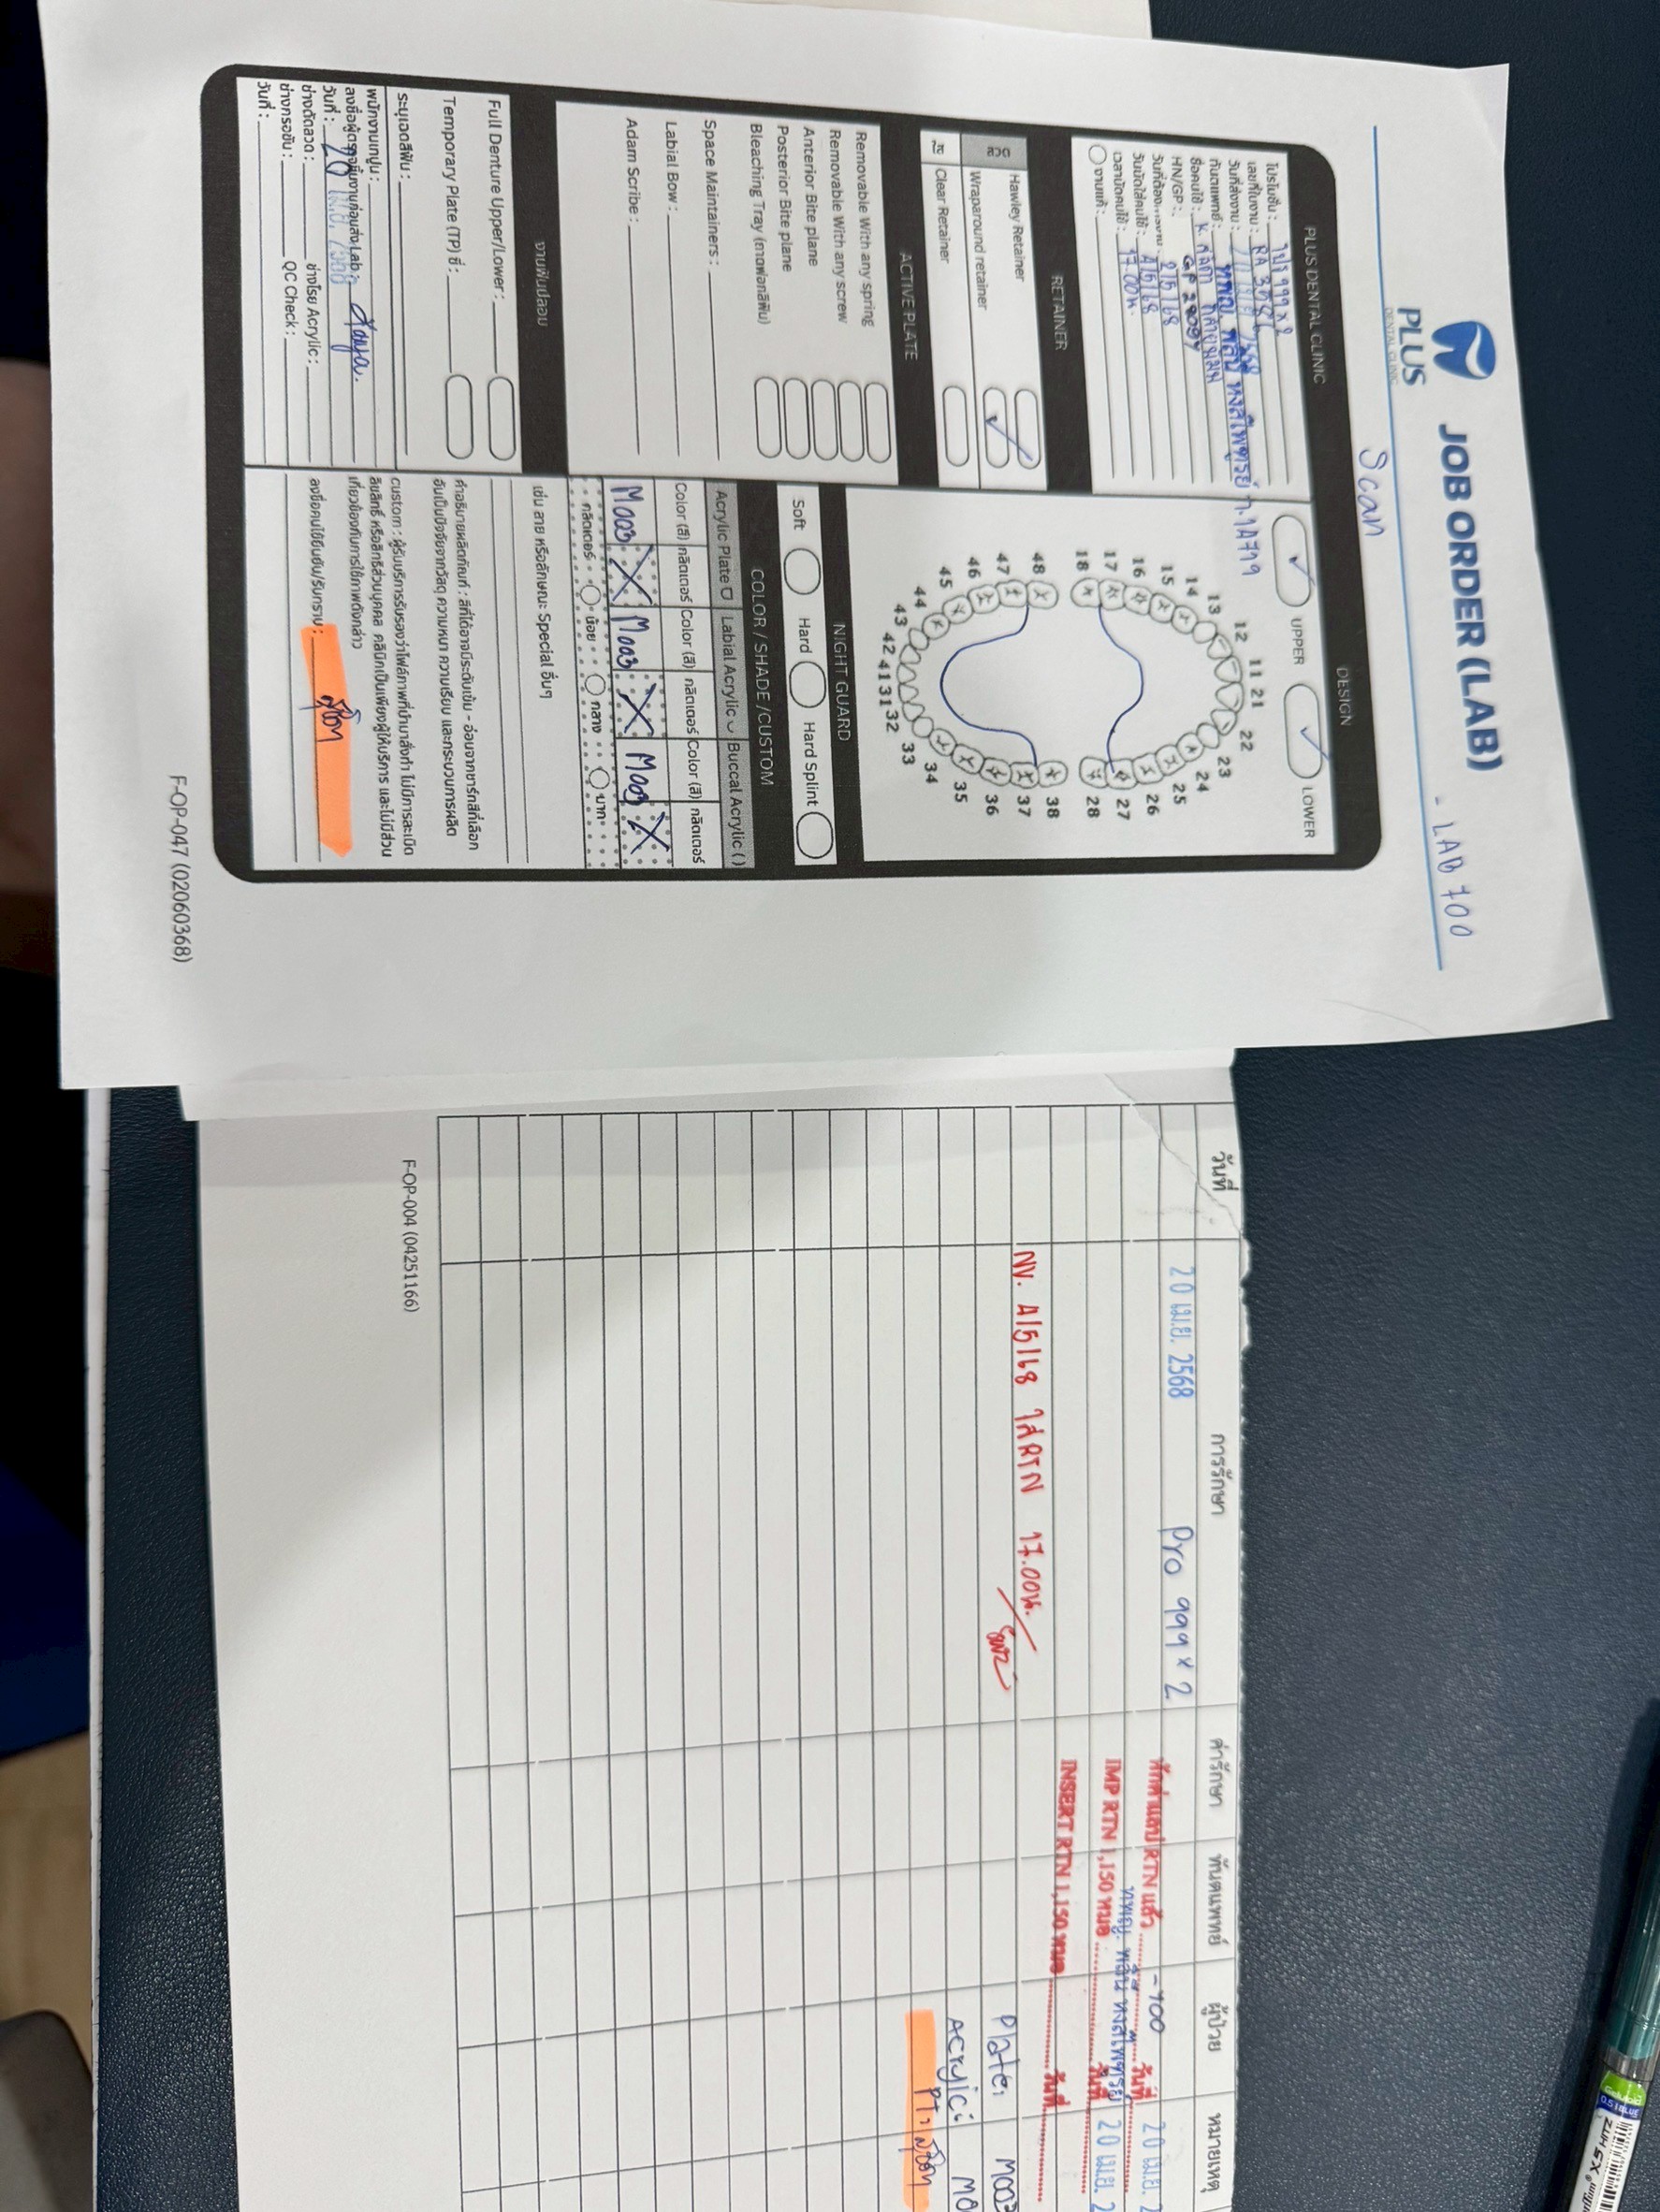 PLUS
DENTAL CLINIC
JOB ORDER (LAB)
- LAB 700
Scan
PLUS DENTAL CLINIC
โปรโมชั่น : โปร 999 x 2
เลขที่ใบงาน :
วันที่ส่งงาน :
ทันตแพทย์ :
ชื่อคนไข้ :
HN/GP :
วันที่ต้อง 2/5/68
วันนัดใส่คนไข้ : 4/5/68
เวลานัดคนไข้ : 17.00น.
งานแก้ :
RETAINER
ลวด
Hawley Retainer
Wraparound retainer
ใส
Clear Retainer
ACTIVE PLATE
Removable With any spring
Removable With any screw
Anterior Bite plane
Posterior Bite plane
Bleaching Tray (ถาดฟอกสีฟัน)
Space Maintainers :
Labial Bow :
Adam Scribe :
งานฟันปลอม
Full Denture Upper/Lower :
Temporary Plate (TP) ซี่ :
ระบุเฉดสีฟัน :
พนักงานเทปูน :
ลงชื่อผู้ตรวจชิ้นงานก่อนส่ง Lab :
วันที่ : 20 เม.ย. 2568
ช่างดัดลวด : ช่างโรย Acrylic :
ช่างกรอขัน : QC Check :
วันที่ :
DESIGN
UPPER LOWER
18 17 16 15 14 13 12 11 21 22 23 24 25 26 27 28
48 47 46 45 44 43 42 41 31 32 33 34 35 36 37 38
NIGHT GUARD
Soft Hard Hard Splint
COLOR / SHADE /CUSTOM
Acrylic Plate Labial Acrylic Buccal Acrylic ()
Color (สี) กลิตเตอร์ Color (สี) กลิตเตอร์ Color (สี) กลิตเตอร์
M003 M003 M003
กลิตเตอร์ น้อย กลาง มาก
เช่น ลาย หรือลักษณะ Special อื่นๆ
คำอธิบายผลิตภัณฑ์ : สีที่ได้อาจมีระดับเข้ม - อ่อนจากชาร์ทสีที่เลือก
อันเป็นปัจจัยจากวัสดุ ความหนา ความเรียบ และกระบวนการผลิต
custom : ผู้รับบริการรับรองว่าไฟล์ภาพที่นำมาสั่งทำ ไม่มีการละเมิด
ลิขสิทธิ์ หรือสิทธิส่วนบุคคล คลินิกเป็นเพียงผู้ให้บริการ และไม่มีส่วน
เกี่ยวข้องกับการใช้ภาพดังกล่าว
ลงชื่อคนไข้ยืนยัน/รับทราบ :
F-OP-047 (02060368)
วันที่ การรักษา ค่ารักษา ทันตแพทย์ ผู้ป่วย หมายเหตุ
20 เม.ย. 2568 Pro 999 x 2
หักค่าแลป RTN แล้ว -700 วันที่ 20 เม.ย. 2
IMP RTN 1,150 หมอ วันที่ 20 เม.ย. 2
INSERT RTN 1,150 หมอ วันที่
NV. 4/5/68 ใส่ RTN 17.00น.
Plate: M003
Acrylic: M0
PT:
F-OP-004 (04251166)